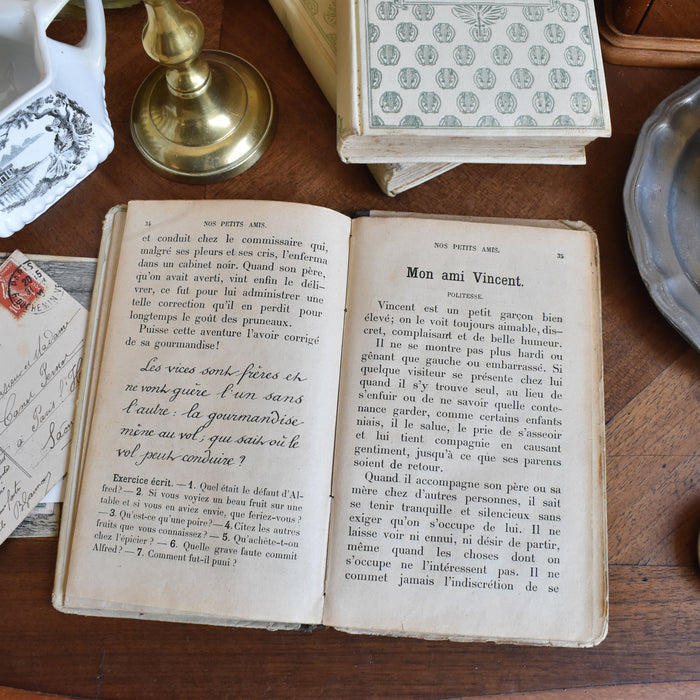 34 NOS PETITS AMIS.
et conduit chez le commissaire qui,
malgré ses pleurs et ses cris, l'enferma
dans un cabinet noir. Quand son père,
qu'on avait averti, vint enfin le déli-
vrer, ce fut pour lui administrer une
telle correction qu'il en perdit pour
longtemps le goût des pruneaux.
Puisse cette aventure l'avoir corrigé
de sa gourmandise!
Les vices sont frères et
ne vont guère l'un sans
l'autre : la gourmandise
mène au vol ; qui sait où le
vol peut conduire ?
Exercice écrit. — 1. Quel était le défaut d'Al-
fred? — 2. Si vous voyiez un beau fruit sur une
table et si vous en aviez envie, que feriez-vous?
— 3. Qu'est-ce qu'une poire? — 4. Citez les autres
fruits que vous connaissez? — 5. Qu'achète-t-on
chez l'épicier? — 6. Quelle grave faute commit
Alfred? — 7. Comment fut-il puni?
NOS PETITS AMIS. 35
Mon ami Vincent.
POLITESSE.
Vincent est un petit garçon bien
élevé; on le voit toujours aimable, dis-
cret, complaisant et de belle humeur.
Il ne se montre pas plus hardi ou
gênant que gauche ou embarrassé. Si
quelque visiteur se présente chez lui
quand il s'y trouve seul, au lieu de
s'enfuir ou de ne savoir quelle conte-
nance garder, comme certains enfants
niais, il le salue, le prie de s'asseoir
et lui tient compagnie en causant
gentiment, jusqu'à ce que ses parents
soient de retour.
Quand il accompagne son père ou sa
mère chez d'autres personnes, il sait
se tenir tranquille et silencieux sans
exiger qu'on s'occupe de lui. Il ne
laisse voir ni ennui, ni désir de partir,
même quand les choses dont on
s'occupe ne l'intéressent pas. Il ne
commet jamais l'indiscrétion de se
Madame